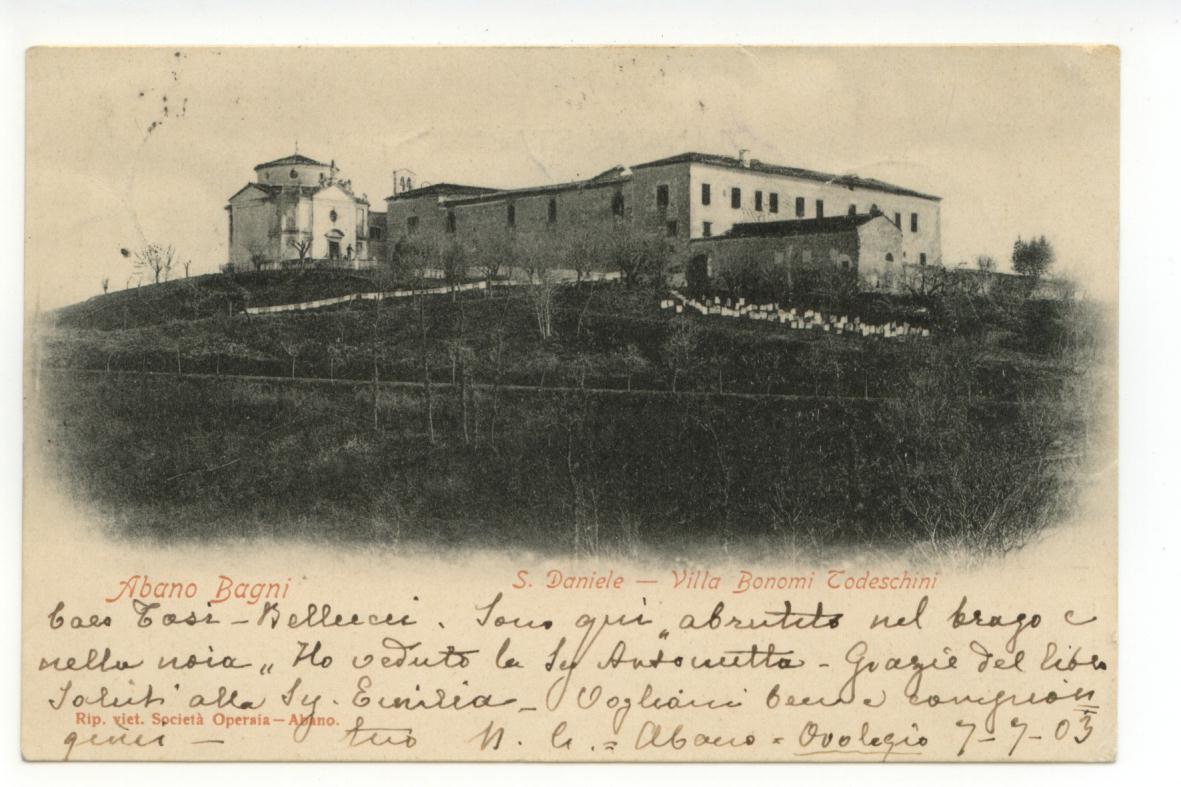 Abano Bagni
S. Daniele — Villa Bonomi Todeschini
Caro Tosi - Bellucci. Sono qui „abrutito nel brago e
nella noia„ Ho veduto la Sg Antonietta - Grazie del libro
Saluti alla Sg. Emilia - Vogliami bene e
Rip. viet. Società Operaia — Abano.
tuo N. G. = Abano = Orologio 7-7-03